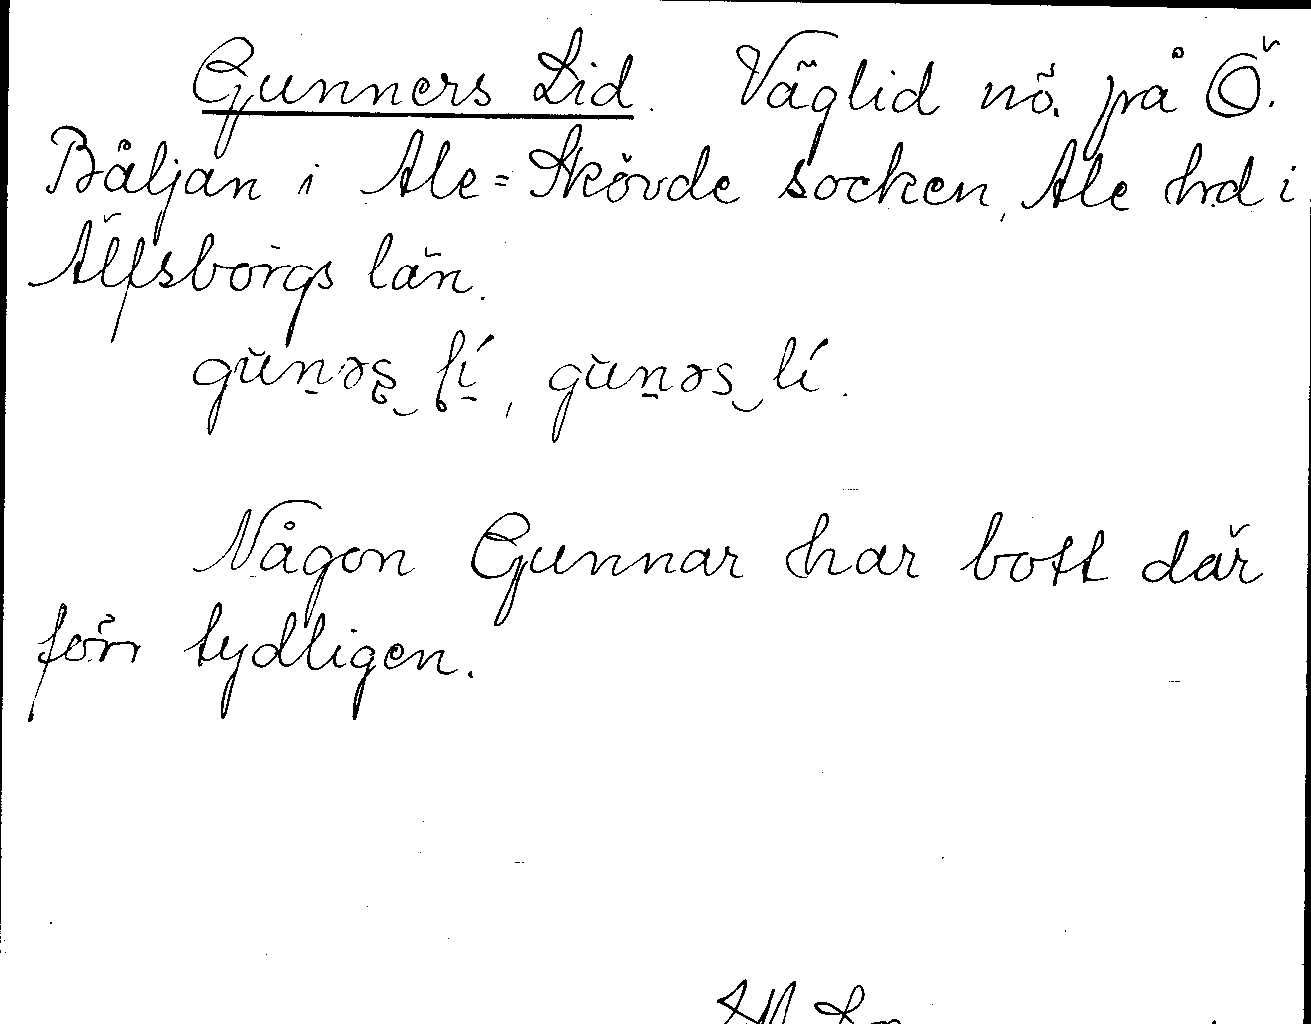 Gunners Lid. Väglid nö. på Ö.
Båljan i Ale=Skövde socken, Ale hd i
Älfsborgs län.
gŭnəs lí, gŭnəs lí.
Någon Gunnar har bott där
förr tydligen.